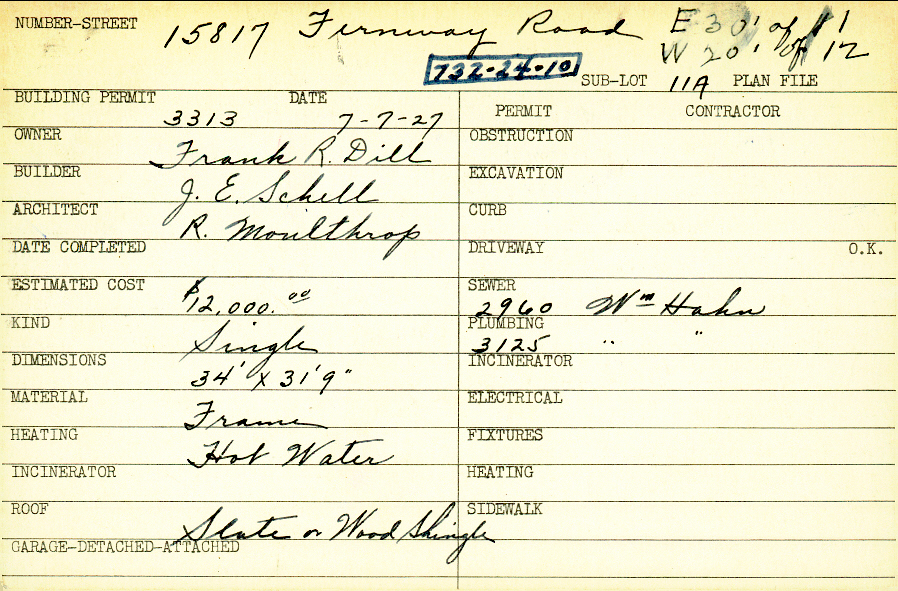 NUMBER-STREET 15817 Fernway Road E 30' of 11
W 20' of 12
732-24-10
SUB-LOT 11A PLAN FILE
BUILDING PERMIT 3313 DATE 7-7-27
PERMIT CONTRACTOR
OWNER Frank R. Dill
OBSTRUCTION
BUILDER J. E. Schell
EXCAVATION
ARCHITECT R. Moulthrop
CURB
DATE COMPLETED
DRIVEWAY O.K.
ESTIMATED COST $12,000.00
SEWER 2960 Wm Hahn
KIND Single
PLUMBING 3125 " "
DIMENSIONS 34' x 31'9"
INCINERATOR
MATERIAL Frame
ELECTRICAL
HEATING Hot Water
FIXTURES
INCINERATOR
HEATING
ROOF Slate or Wood Shingle
SIDEWALK
GARAGE-DETACHED-ATTACHED